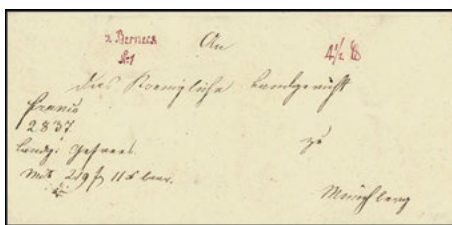 v. Berneck
An
N1
4 1/2 ₰
Das Koenigliche Landgericht
franco
2837.
Landg. Gefrees.
zu
Mit 219 f 11 x baar.
Münchberg